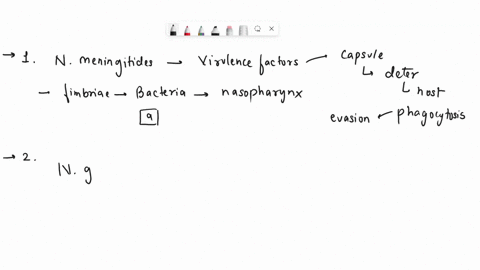 → 1. N. meningitides → Virulence factors — capsule
↳ deter
↳ host
- fimbriae → Bacteria → nasopharynx
evasion ← phagocytosis
a
→ 2. N. g